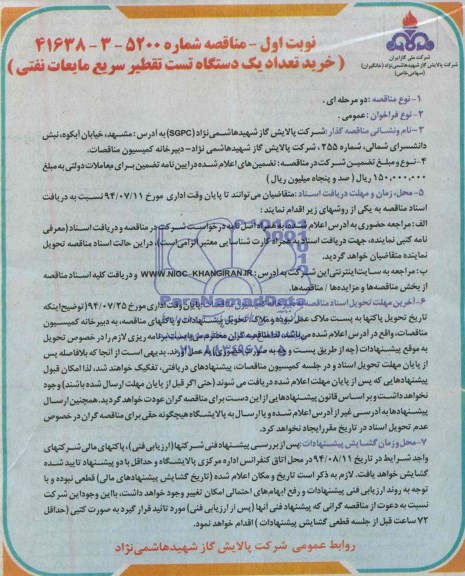 شرکت ملی گاز ایران
شرکت پالایش گاز شهید هاشمی‌نژاد (خانگیران)
(سهامی خاص)
نوبت اول - مناقصه شماره ۵۲۰۰ - ۳ - ۴۱۶۳۸
( خرید تعداد یک دستگاه تست تقطیر سریع مایعات نفتی )
۱- نوع مناقصه : دو مرحله ای .
۲- نوع فراخوان : عمومی .
۳- نام و نشانی مناقصه گذار: شرکت پالایش گاز شهیدهاشمی نژاد (SGPC) به آدرس : مشهد، خیابان آبکوه، نبش
دانشسرای شمالی، شماره ۲۵۵، شرکت پالایش گاز شهیدهاشمی نژاد- دبیرخانه کمیسیون مناقصات.
۴- نوع و مبلغ تضمین شرکت در مناقصه : تضمین های اعلام شده در آیین نامه تضمین برای معاملات دولتی به مبلغ
۱۵۰,۰۰۰,۰۰۰ ریال ( صد و پنجاه میلیون ریال )
۵- محل، زمان و مهلت دریافت اسناد : متقاضیان می توانند تا پایان وقت اداری مورخ ۹۴/۰۷/۱۱ نسبت به دریافت
اسناد مناقصه به یکی از روشهای زیر اقدام نمایند :
الف : مراجعه حضوری به آدرس اعلام شده به همراه اصل نامه درخواست شرکت در مناقصه و دریافت اسناد (معرفی
نامه کتبی نماینده، جهت دریافت اسناد به همراه کارت شناسایی معتبر الزامی است)، در این حالت اسناد مناقصه تحویل
نماینده متقاضیان خواهد گردید.
ب : مراجعه به سایت اینترنتی این شرکت به آدرس : WWW.NIOC-KHANGIRAN.IR و دریافت کلیه اسناد مناقصه
از بخش مناقصه ها و مزایده ها / مناقصه ها.
۶- آخرین مهلت تحویل اسناد مناقصه به دبیرخانه پایان وقت اداری مورخ ۹۴/۰۷/۲۵ (توضیح اینکه
تاریخ تحویل پاکتها به پست ملاک عمل نبوده و ملاک، تحویل پیشنهادات و پاکتهای مناقصه، به دبیرخانه کمیسیون
مناقصات، واقع در آدرس اعلام شده می باشد، لذا مناقصه گران محترم می بایست برنامه ریزی لازم را در خصوص تحویل
به موقع پیشنهادات (چه از طریق پست و چه به صورت حضوری) به عمل آورند. بدیهی است از آنجا که بلافاصله پس
از پایان مهلت تحویل اسناد و در جلسه کمیسیون مناقصات، پیشنهادهای دریافتی، تفکیک خواهند شد، لذا امکان قبول
پیشنهادهایی که پس از پایان مهلت اعلام شده دریافت می شوند (حتی اگر قبل از پایان مهلت ارسال شده باشند) وجود
نخواهد داشت و بر اساس قانون پیشنهادهایی از این دست برای مناقصه گران عودت خواهد گردید. همچنین ارسال
پیشنهادها به آدرسی غیر از آدرس اعلام شده و یا ارسال به پالایشگاه هیچگونه حقی برای مناقصه گران در خصوص
عدم تحویل اسناد در تاریخ مقرر ایجاد نخواهد کرد.
۷- محل و زمان گشایش پیشنهادات : پس از بررسی پیشنهاد فنی شرکتها (ارزیابی فنی)، پاکتهای مالی شرکتهای
واجد شرایط در تاریخ ۹۴/۰۸/۱۱ در محل اتاق کنفرانس اداره مرکزی پالایشگاه و حداقل با دو پیشنهاد تایید شده
گشایش خواهد یافت. لازم به ذکر است تاریخ و مکان اعلام شده (تاریخ گشایش پیشنهادهای مالی) قطعی نبوده و با
توجه به روند ارزیابی فنی پیشنهادات و رفع ابهام های احتمالی امکان تغییر وجود خواهد داشت، با این وجود این شرکت
نسبت به دعوت از مناقصه گرانی که پیشنهاد فنی آنها (پس از ارزیابی فنی) مورد تائید قرار گیرد به صورت کتبی (حداقل
۷۲ ساعت قبل از جلسه قطعی گشایش پیشنهادات ) اقدام خواهد نمود.
روابط عمومی شرکت پالایش گاز شهیدهاشمی نژاد